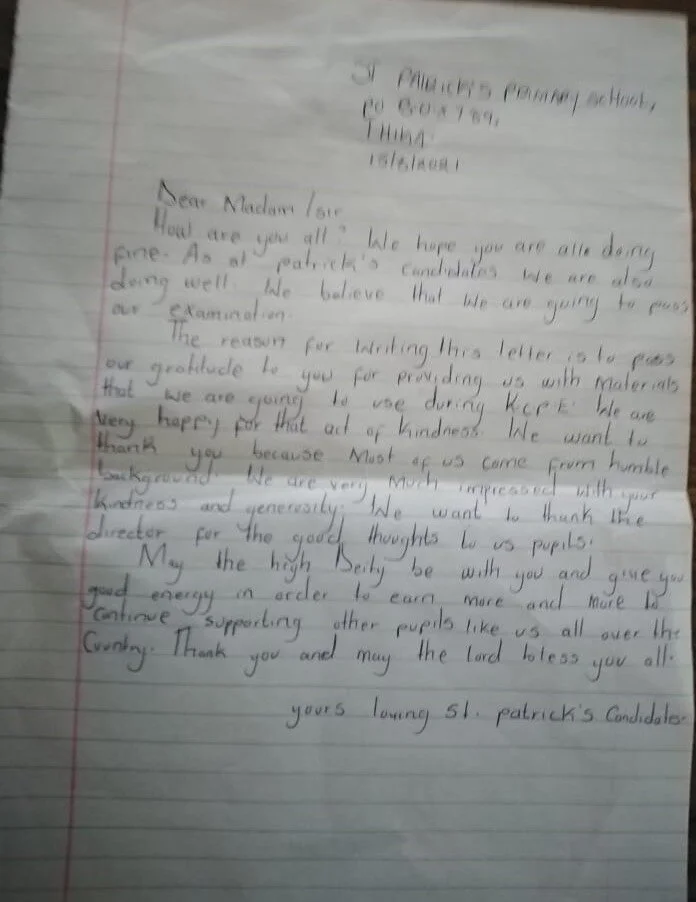 ST PATRICK'S PRIMARY SCHOOL,
PO BOX 789,
THIKA.
Dear Madam /sir
How are you all? We hope you are all doing
fine. As st patrick's candidates we are also
doing well. We believe that we are going to pass
our examination.
The reason for writing this letter is to pass
our gratitude to you for providing us with materials
that we are going to use during K.C.P.E. We are
very happy for that act of kindness. We want to
thank you because most of us come from humble
background. We are very much impressed with your
kindness and generosity. We want to thank the
director for the good thoughts to us pupils.
May the high Deity be with you and give you
good energy in order to earn more and more to
continue supporting other pupils like us all over the
Country. Thank you and may the lord bless you all.
yours loving St. patrick's Candidates.